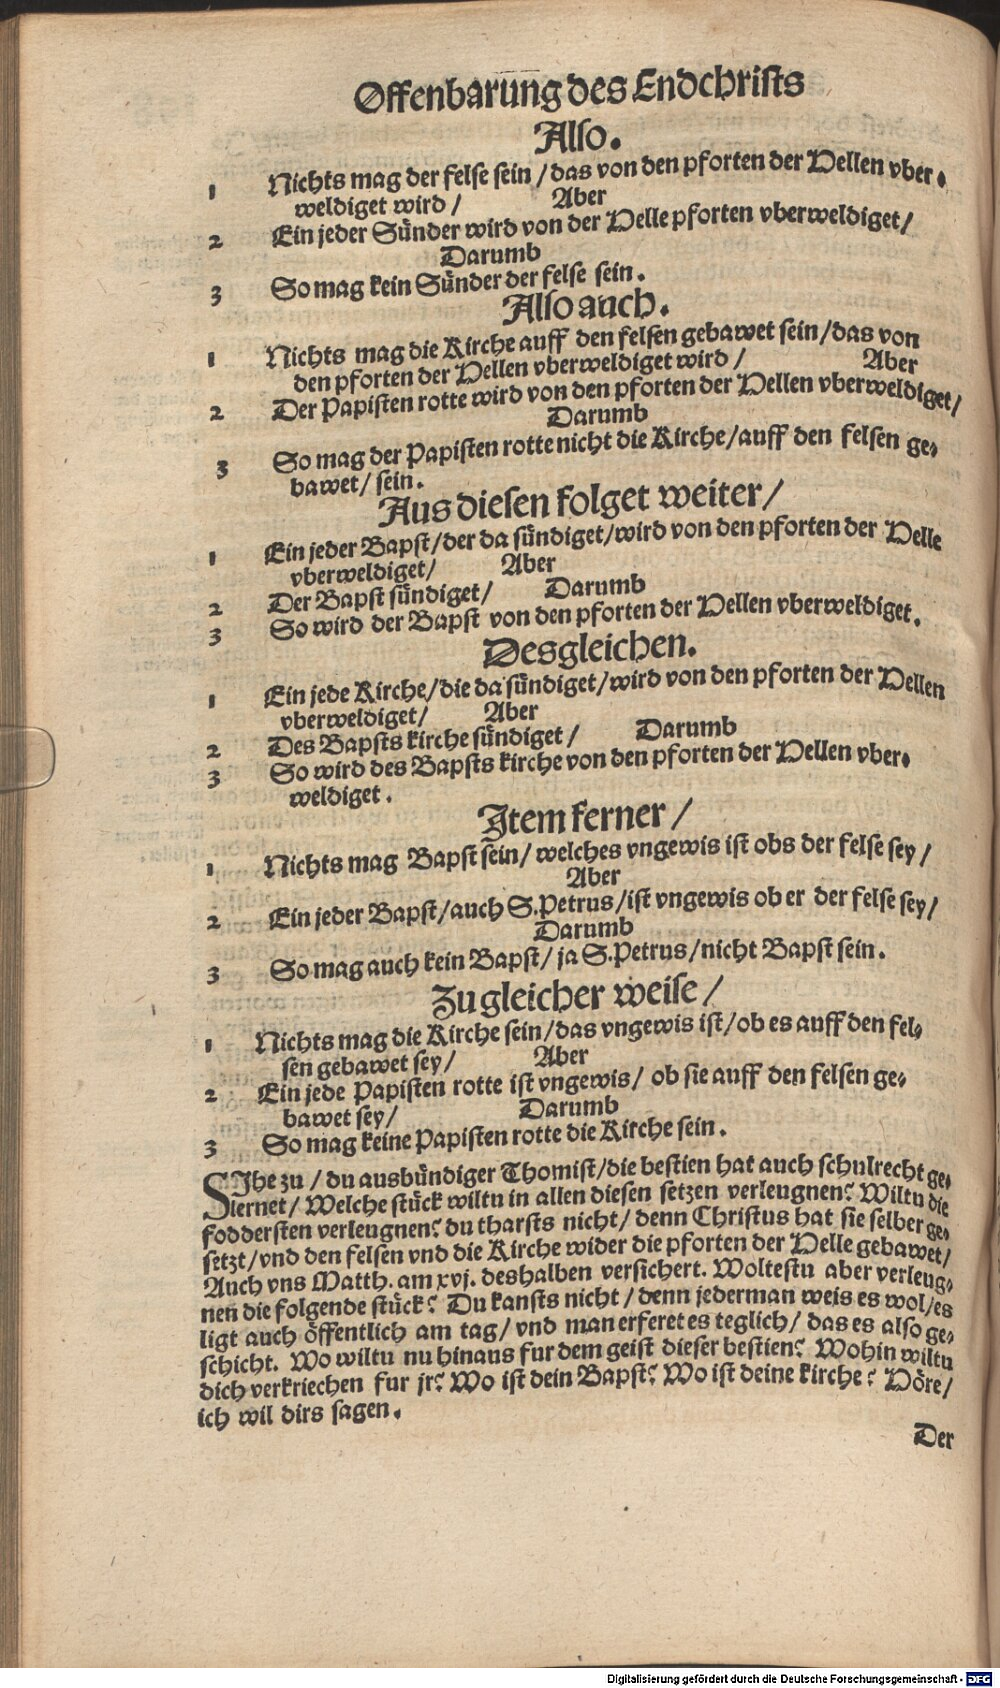 Offenbarung des Endchrists
Also.
1 Nichts mag der felse sein / das von den pforten der Hellen vber⸗
weldiget wird / Aber
2 Ein jeder Sünder wird von der Helle pforten vberweldiget /
Darumb
3 So mag kein Sünder der felse sein.
Also auch.
1 Nichts mag die Kirche auff den felsen gebawet sein / das von
den pforten der Hellen vberweldiget wird / Aber
2 Der Papisten rotte wird von den pforten der Hellen vberweldiget /
Darumb
3 So mag der Papisten rotte nicht die Kirche / auff den felsen ge⸗
bawet / sein.
Aus diesen folget weiter /
1 Ein jeder Bapst / der da sündiget / wird von den pforten der Helle
vberweldiget / Aber
2 Der Bapst sündiget / Darumb
3 So wird der Bapst von den pforten der Hellen vberweldiget.
Desgleichen.
1 Ein jede Kirche / die da sündiget / wird von den pforten der Hellen
vberweldiget / Aber
2 Des Bapsts kirche sündiget / Darumb
3 So wird des Bapsts kirche von den pforten der Hellen vber⸗
weldiget.
Item ferner /
1 Nichts mag Bapst sein / welches vngewis ist obs der felse sey /
Aber
2 Ein jeder Bapst / auch S. Petrus / ist vngewis ob er der felse sey /
Darumb
3 So mag auch kein Bapst / ja S. Petrus / nicht Bapst sein.
Zu gleicher weise /
1 Nichts mag die Kirche sein / das vngewis ist / ob es auff den fel⸗
sen gebawet sey / Aber
2 Ein jede Papisten rotte ist vngewis / ob sie auff den felsen ge⸗
bawet sey / Darumb
3 So mag keine Papisten rotte die Kirche sein.
SIhe zu / du ausbündiger Thomist / die bestien hat auch schulrecht ge⸗
lernet / Welche stück wiltu in allen diesen setzen verleugnen? Wiltu die
foddersten verleugnen? du tharsts nicht / denn Christus hat sie selber ge⸗
setzt / vnd den felsen vnd die Kirche wider die pforten der Helle gebawet /
Auch vns Matth. am xvj. deshalben versichert. Woltestu aber verleug⸗
nen die folgende stück? Du kansts nicht / denn jederman weis es wol / es
ligt auch öffentlich am tag / vnd man erferet es teglich / das es also ge⸗
schicht. Wo wiltu nu hinaus fur dem geist dieser bestien? Wohin wiltu
dich verkriechen fur jr? Wo ist dein Bapst? Wo ist deine kirche? Höre /
ich wil dirs sagen.
Der
Digitalisierung gefördert durch die Deutsche Forschungsgemeinschaft - DFG